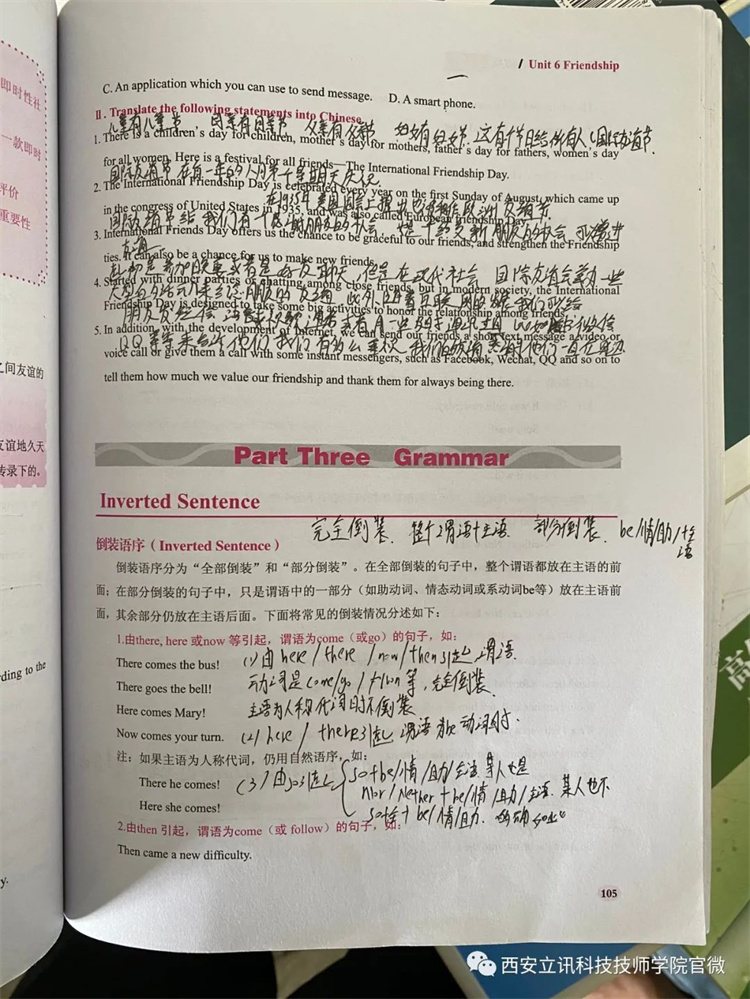 / Unit 6 Friendship
C. An application which you can use to send message. D. A smart phone.
Ⅱ. Translate the following statements into Chinese.
儿童有儿童节 母亲有母亲节 父亲有父亲节 妇女有妇女节 这有个节日给所有人 国际友谊节
1. There is a children's day for children, mother's day for mothers, father's day for fathers, women's day
for all women. Here is a festival for all friends—The International Friendship Day.
国际友谊节在每一年的八月第一个星期天庆祝
2. The International Friendship Day is celebrated every year on the first Sunday of August, which came up
在1935年美国国会上提出也
in the congress of United States in 1935, and was also called European Friendship Day.
国际友谊节给我们有一个感谢朋友的机会
3. International Friends Day offers us the chance to be graceful to our friends, and strengthen the Friendship
友谊
ties. It can also be a chance for us to make new friends.
但是在现代社会 国际友谊
4. Started with dinner parties or chatting among close friends, but in modern society, the International
Friendship Day is designed to make some big activities to honor the relationship among friends.
5. In addition, with the development of Internet, we can send our friends a short text message a video or
QQ等等来告诉他们我们有多么
voice call or give them a call with some instant messengers, such as Facebook, Wechat, QQ and so on to
tell them how much we value our friendship and thank them for always being there.
Part Three Grammar
Inverted Sentence
完全倒装、整个谓语+主语 部分倒装、be/情/助/+主语
倒装语序（Inverted Sentence）
倒装语序分为“全部倒装”和“部分倒装”。在全部倒装的句子中，整个谓语都放在主语的前
面；在部分倒装的句子中，只是谓语中的一部分（如助动词、情态动词或系动词be等）放在主语前
面，其余部分仍放在主语后面。下面将常见的倒装情况分述如下：
1.由there, here 或now 等引起，谓语为come（或go）的句子，如：
There comes the bus! (1) 由 here / there / now / then引起 谓语
There goes the bell! 动词是 come/go / 等，完全倒装
Here comes Mary! 主语为人称代词时不倒装
Now comes your turn. (2) here / there引起 谓语为be动词时
注：如果主语为人称代词，仍用自然语序，如：
There he comes! (3) 由so引起 so+be/情/助/主语 某人也是
nor / neither + be/情/助/主语 某人也不
Here she comes! so+主+be/情/助. 的确如此
2.由then 引起，谓语为come（或 follow）的句子，如：
Then came a new difficulty.
105
即时性社
一款即时
评价
重要性
之间友谊的
友谊地久天
传录下的。
ding to the
y.
西安立讯科技技师学院官微